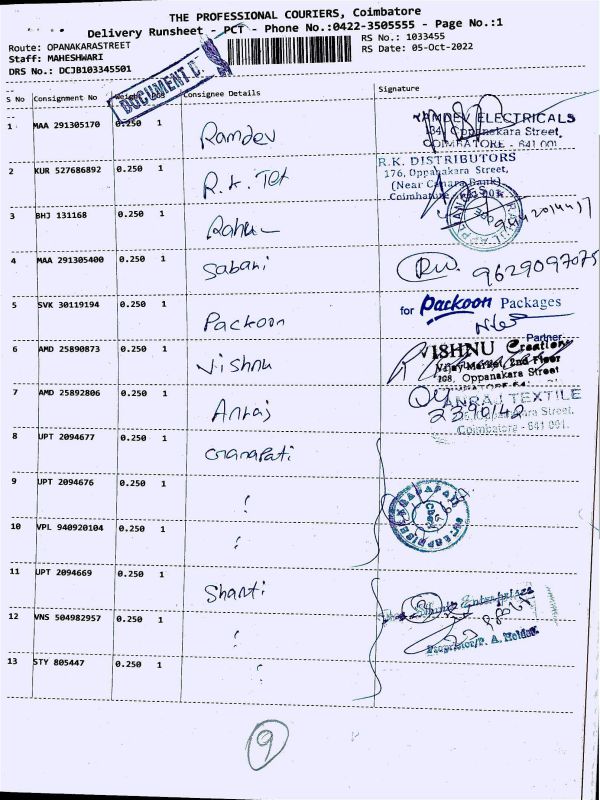 THE PROFESSIONAL COURIERS, Coimbatore
Delivery Runsheet - PCT - Phone No.:0422-3505555 - Page No.:1
Route: OPANAKARASTREET
RS No.: 1033455
Staff: MAHESHWARI
RS Date: 05-Oct-2022
DRS No.: DCJB103345501
DOCUMENT
S No Consignment No Weight Consignee Details Signature
1 MAA 291305170 0.250 1 Ramdev
RAMDEV ELECTRICALS
134, Oppanakara Street,
COIMBATORE - 641 001.
2 KUR 527686892 0.250 1 R.K. Tex
R.K. DISTRIBUTORS
176, Oppanakara Street,
(Near Canara Bank)
3 BHJ 131168 0.250 1 Rahul
4 MAA 291305400 0.250 1 Sabari
9629097075
5 SVK 30119194 0.250 1 Packoon
for Packoon Packages
Partner
6 AMD 25890873 0.250 1 Vishnu
VISHNU Creation
Vijay Market, 2nd Floor
208, Oppanakara Street
7 AMD 25892806 0.250 1 Anraj
ANRAJ TEXTILE
2390142
Coimbatore - 641 001.
8 UPT 2094677 0.250 1 Ganapati
9 UPT 2094676 0.250 1
10 VPL 940920104 0.250 1
11 UPT 2094669 0.250 1 Shanti
12 VNS 504982957 0.250 1
13 STY 805447 0.250 1
9